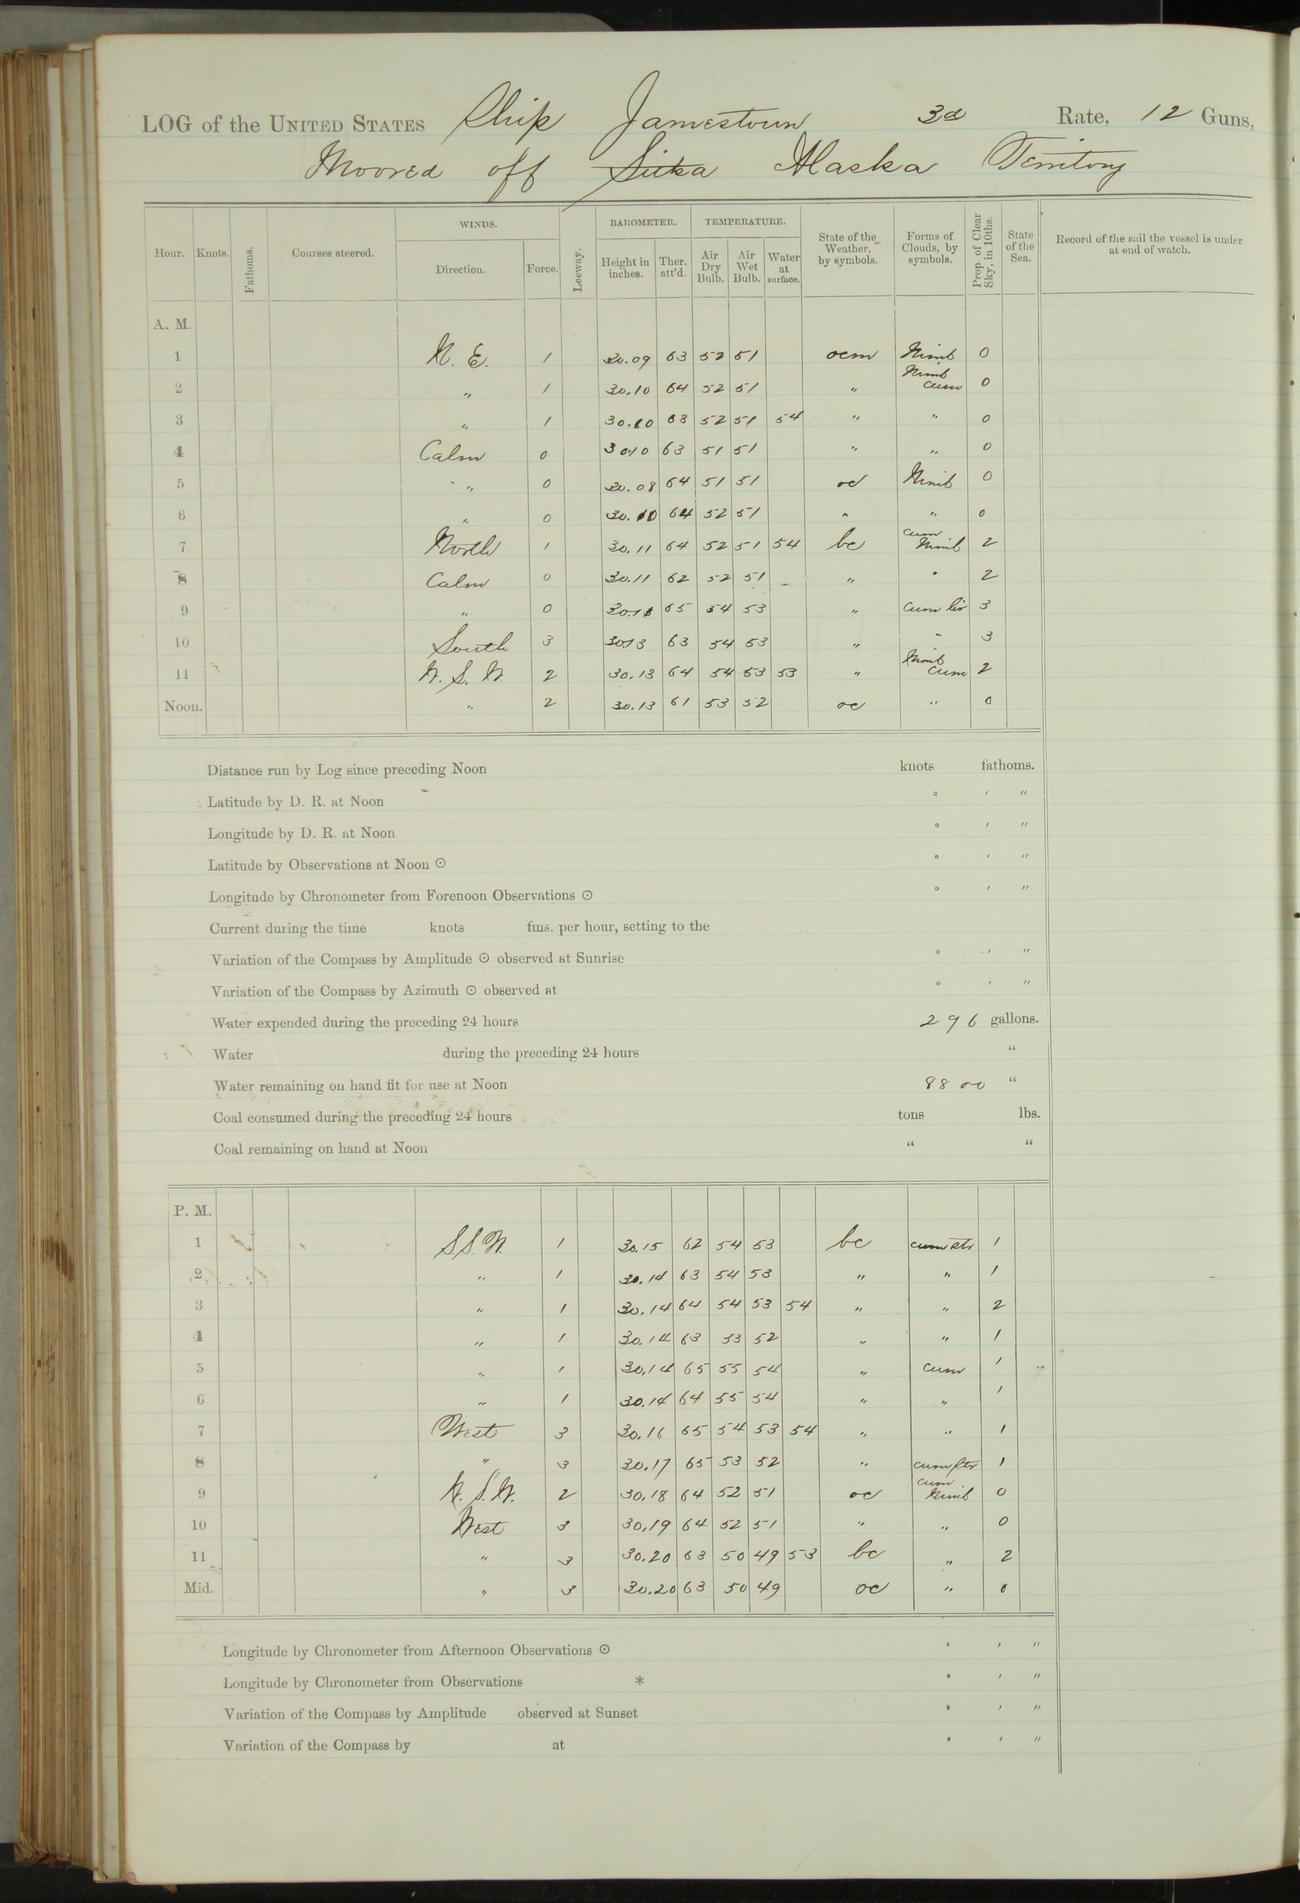 LOG of the UNITED STATES Ship Jamestown 3d Rate, 12 Guns,
Moored off Sitka Alaska Territory
Hour. Knots. Fathoms. Courses steered. WINDS. Direction. Force. Leeway. BAROMETER. Height in inches. Ther. att'd. TEMPERATURE. Air Dry Bulb. Air Wet Bulb. Water at surface. State of the Weather, by symbols. Forms of Clouds, by symbols. Prop. of Clear Sky, in 10ths. State of the Sea. Record of the sail the vessel is under at end of watch.
A. M.
1 N. E. 1 30.09 63 52 51 ocm Nimb 0
2 " 1 30.10 64 52 51 " Nimb Cum 0
3 " 1 30.10 63 52 51 54 " " 0
4 Calm 0 30.10 63 51 51 " " 0
5 " 0 30.08 64 51 51 oc Nimb 0
6 " 0 30.10 64 52 51 " " 0
7 North 1 30.11 64 52 51 54 bc Cum Nimb 2
8 Calm 0 30.11 62 52 51 " " 2
9 " 0 65 54 53 " Cum Cir 3
10 South 3 30.13 63 54 53 " " 3
11 W. S. W. 2 30.13 64 54 53 53 " Nimb Cum 2
Noon. " 2 30.13 61 53 52 oc " 0
Distance run by Log since preceding Noon knots fathoms.
Latitude by D. R. at Noon ° ′ ″
Longitude by D. R. at Noon ° ′ ″
Latitude by Observations at Noon ☉ ° ′ ″
Longitude by Chronometer from Forenoon Observations ☉ ° ′ ″
Current during the time knots fms. per hour, setting to the
Variation of the Compass by Amplitude ☉ observed at Sunrise ° ′ ″
Variation of the Compass by Azimuth ☉ observed at ° ′ ″
Water expended during the preceding 24 hours 296 gallons.
Water during the preceding 24 hours "
Water remaining on hand fit for use at Noon 8800 "
Coal consumed during the preceding 24 hours tons lbs.
Coal remaining on hand at Noon " "
P. M.
1 SSW 1 30.15 62 54 53 bc cum str 1
2 " 1 30.14 63 54 53 " " 1
3 " 1 30.14 64 54 53 54 " " 2
4 " 1 30.14 63 53 52 " " 1
5 " 1 30.14 65 55 54 " cum 1
6 " 1 30.14 64 55 54 " " 1
7 West 3 30.16 65 54 53 54 " " 1
8 " 3 30.17 65 53 52 " cum str 1
9 W. S. W. 2 30.18 64 52 51 oc cum Nimb 0
10 West 3 30.19 64 52 51 " " 0
11 " 3 30.20 63 50 49 53 bc " 2
Mid. " 3 30.20 63 50 49 oc " 0
Longitude by Chronometer from Afternoon Observations ☉ ° ′ ″
Longitude by Chronometer from Observations * ° ′ ″
Variation of the Compass by Amplitude observed at Sunset ° ′ ″
Variation of the Compass by at ° ′ ″